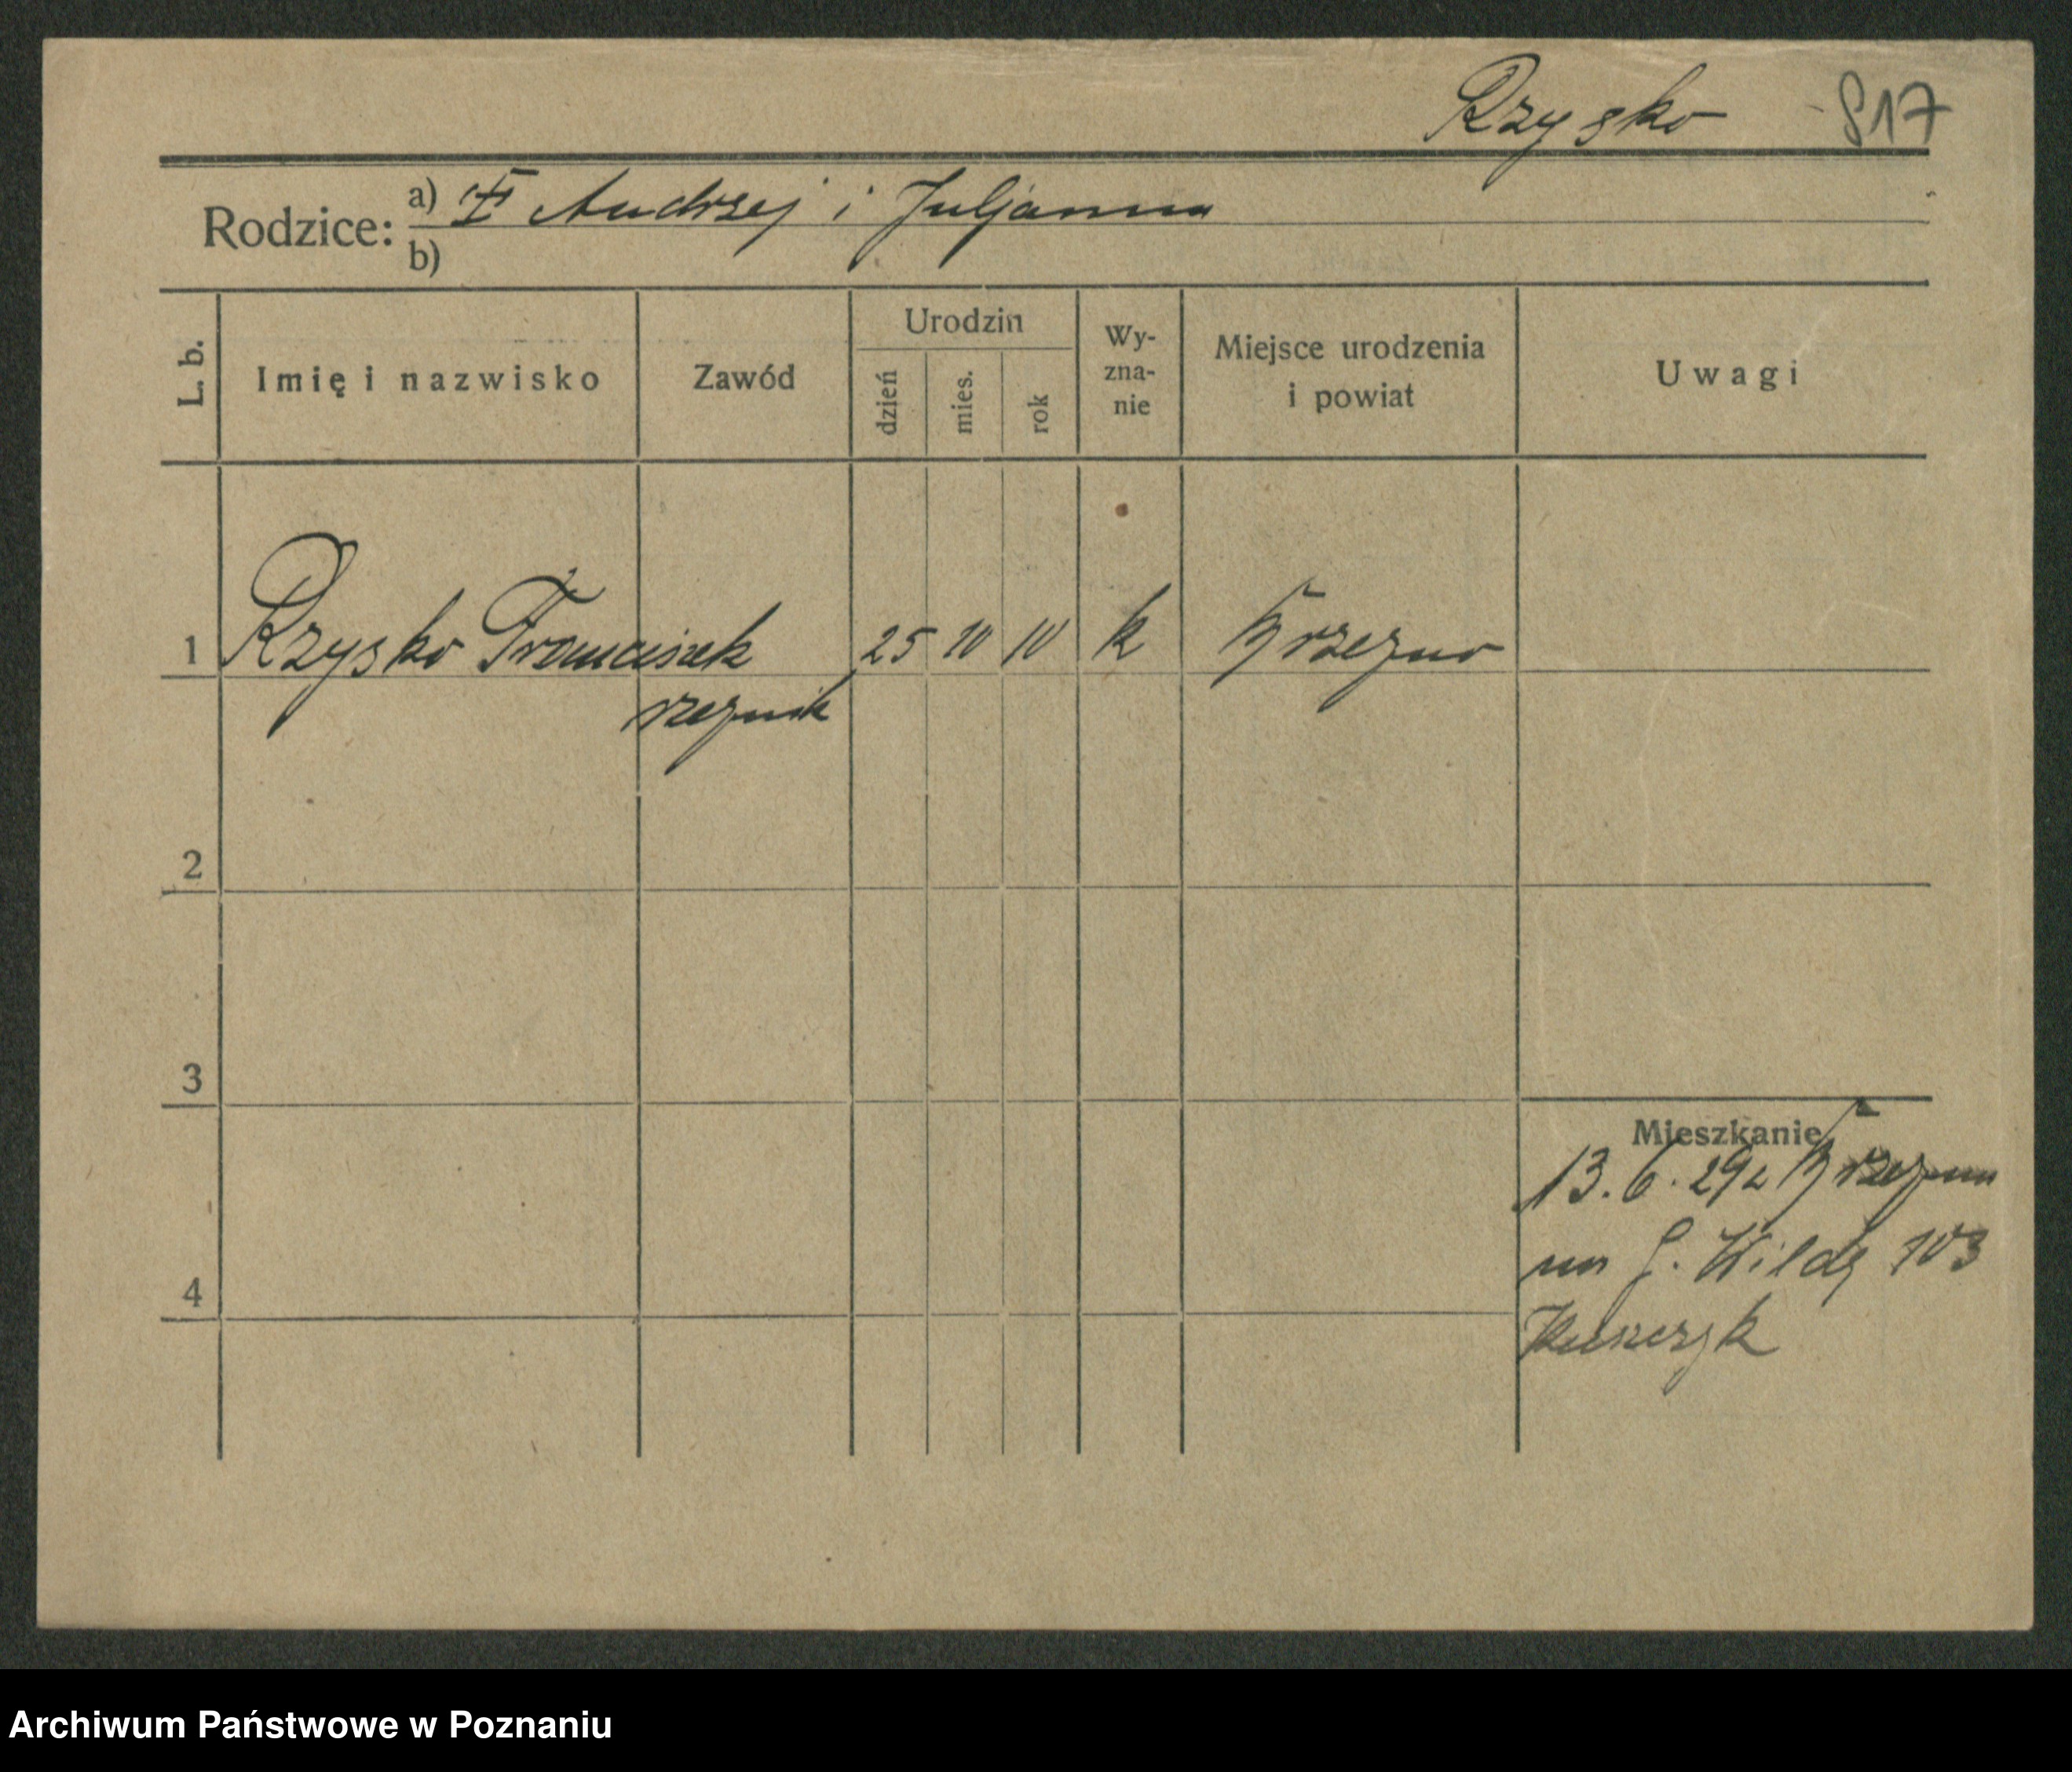 Rzysko 817
Rodzice: a) Andrzej i Juljanna
b)
L. b. Imię i nazwisko Zawód Urodzin dzień mies. rok Wy-zna-nie Miejsce urodzenia i powiat Uwagi
1 Rzysko Franciszek 25 10 10 k Brzezno
rzeznik
2
3
Mieszkanie
13. 6. 29 z Brzezna
na G. Wildę 103
4
Archiwum Państwowe w Poznaniu